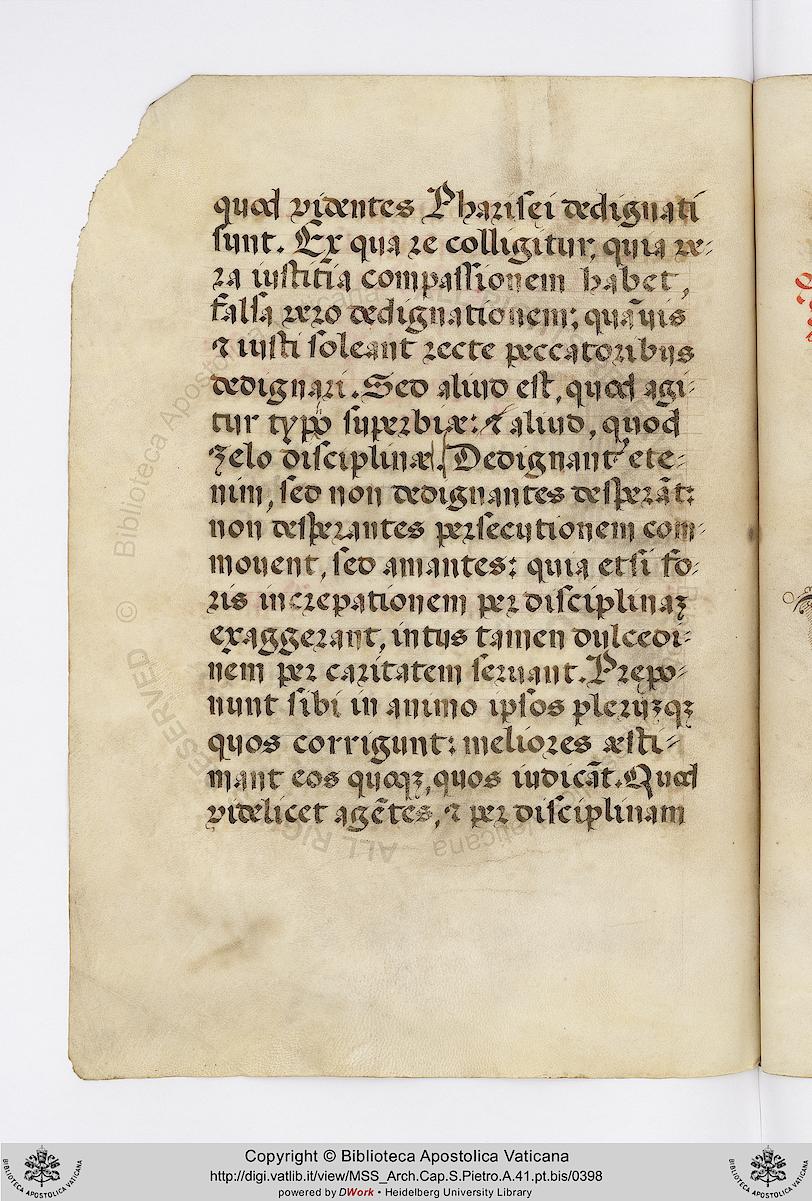 quod videntes Pharisei dedignati
sunt. Ex qua re colligitur, quia ve-
ra iustitia compassionem habet,
falsa vero dedignationem; quāuis
⁊ iusti soleant recte peccatoribus
dedignari. Sed aliud est, quod agi-
tur typo superbiæ: ⁊ aliud, quod
zelo disciplinæ. Dedignant̃ ete-
nim, sed non dedignantes desperāt:
non desperantes persecutionem com-
mouent, sed amantes: quia etsi fo-
ris increpationem per disciplinaꝫ
exaggerant, intus tamen dulcedi-
nem per caritatem seruant. Prepo-
nunt sibi in animo ipsos pleruꝫqꝫ
quos corrigunt: meliores æsti-
mant eos quoqꝫ, quos iudicāt. Quod
videlicet agētes, ⁊ per disciplinam
© Biblioteca Apostolica Vaticana
ALL RIGHTS RESERVED
Copyright © Biblioteca Apostolica Vaticana
http://digi.vatlib.it/view/MSS_Arch.Cap.S.Pietro.A.41.pt.bis/0398
powered by DWork • Heidelberg University Library
BIBLIOTECA APOSTOLICA VATICANA
BIBLIOTECA APOSTOLICA VATICANA